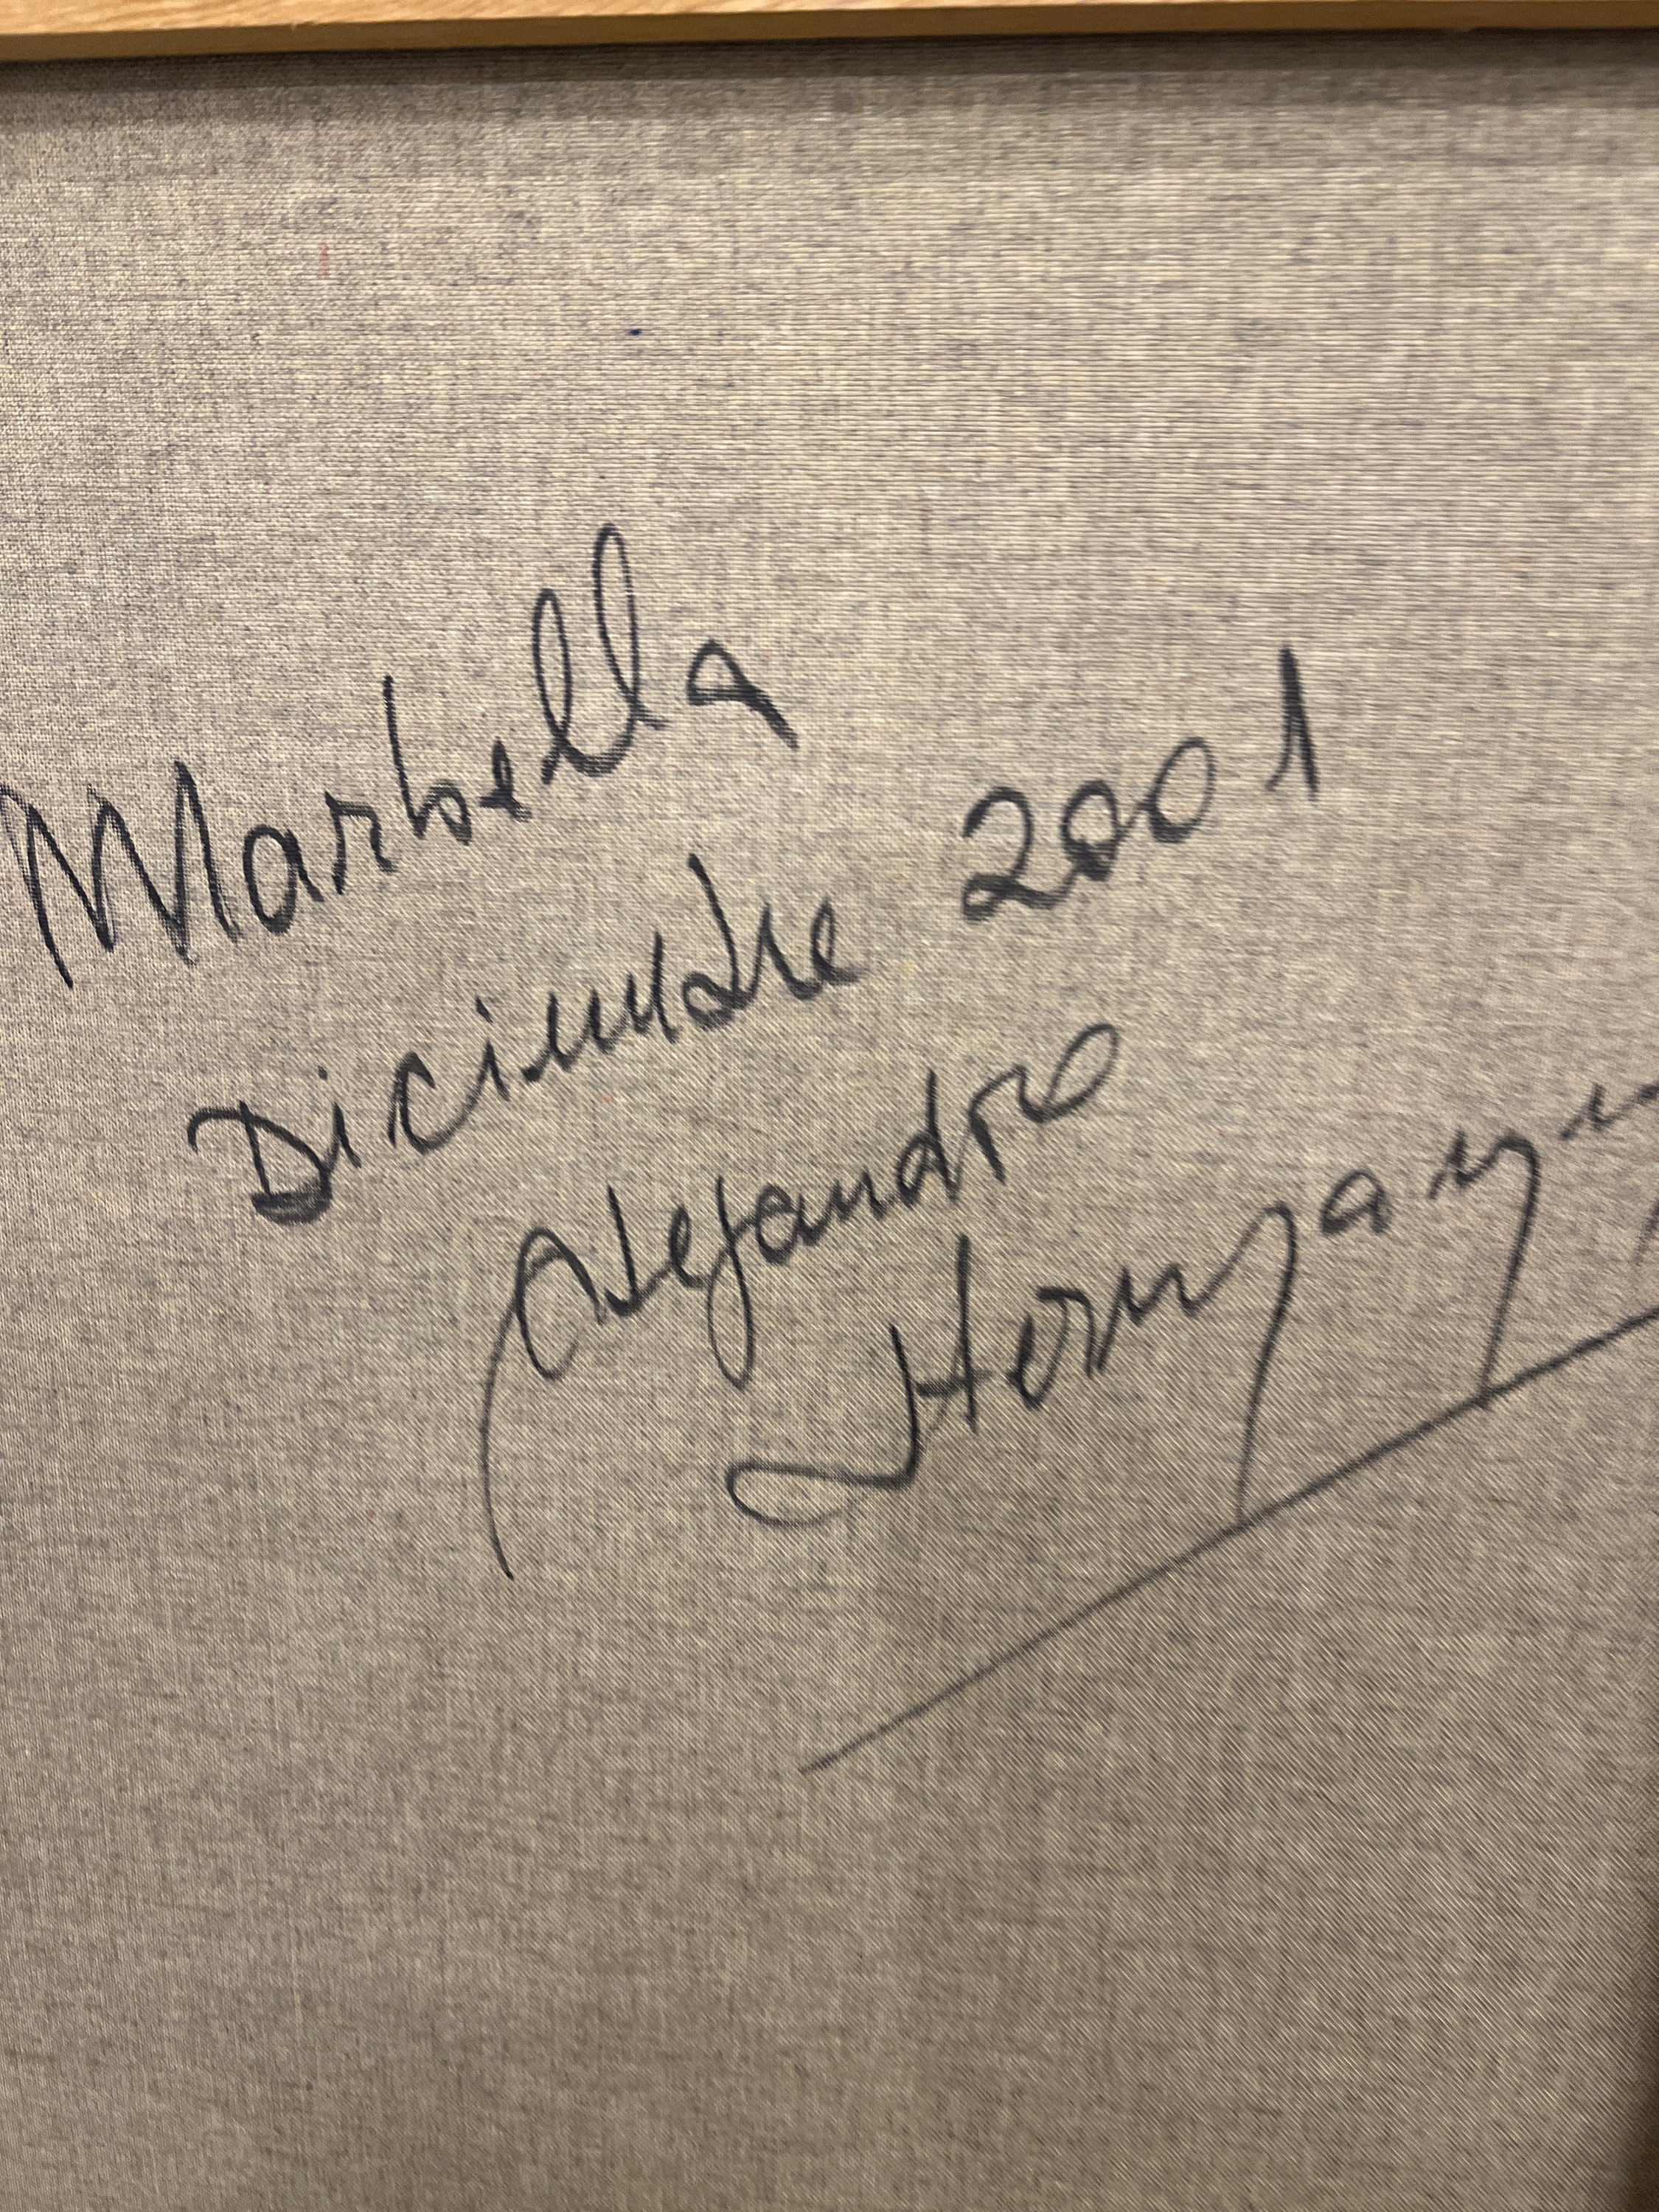 Marbella
Diciembre 2001
Alejandro